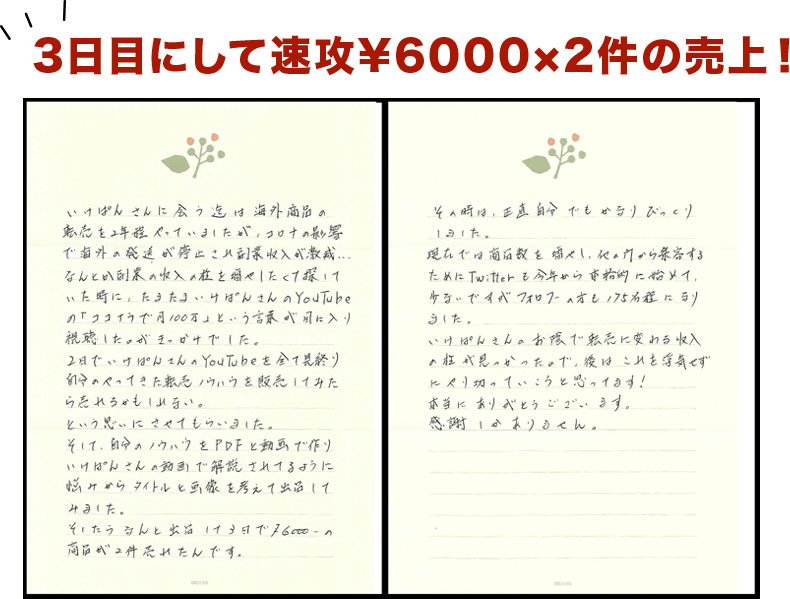 3日目にして速攻¥6000×2件の売上！
いけぱんさんに会う迄は海外商品の
転売を2年程やっていましたが、コロナの影響
で海外の発送が停止され副業収入が激減…
なんとか副業の収入の柱を増やしたくて探して
いた時に、たまたまいけぱんさんのYouTube
の「ココナラで月100万」という言葉が目に入り
視聴したのがきっかけでした。
2日でいけぱんさんのYouTubeを全て見終り
自分のやってきた転売ノウハウを販売してみた
ら売れるかもしれない。
という思いにさせてもらいました。
そして、自分のノウハウをPDFと動画で作り
いけぱんさんの動画で解説されてるように
悩みからタイトルと画像を考えて出品して
みました。
そしたらなんと出品して3日で¥6000-の
商品が2件売れたんです。
MIDORI
その時は、正直自分でもかなりびっくり
しました。
現在では商品数を増やし、他の所から集客する
ためにTwitterも今年から本格的に始めて、
少ないですがフォロワーの方も175名程になり
ました。
いけぱんさんのお陰で転売に変わる収入
の柱が見つかったので、後はこれを浮気せず
にやり切っていこうと思ってます！
本当にありがとうございます。
感謝しかありません。
MIDORI